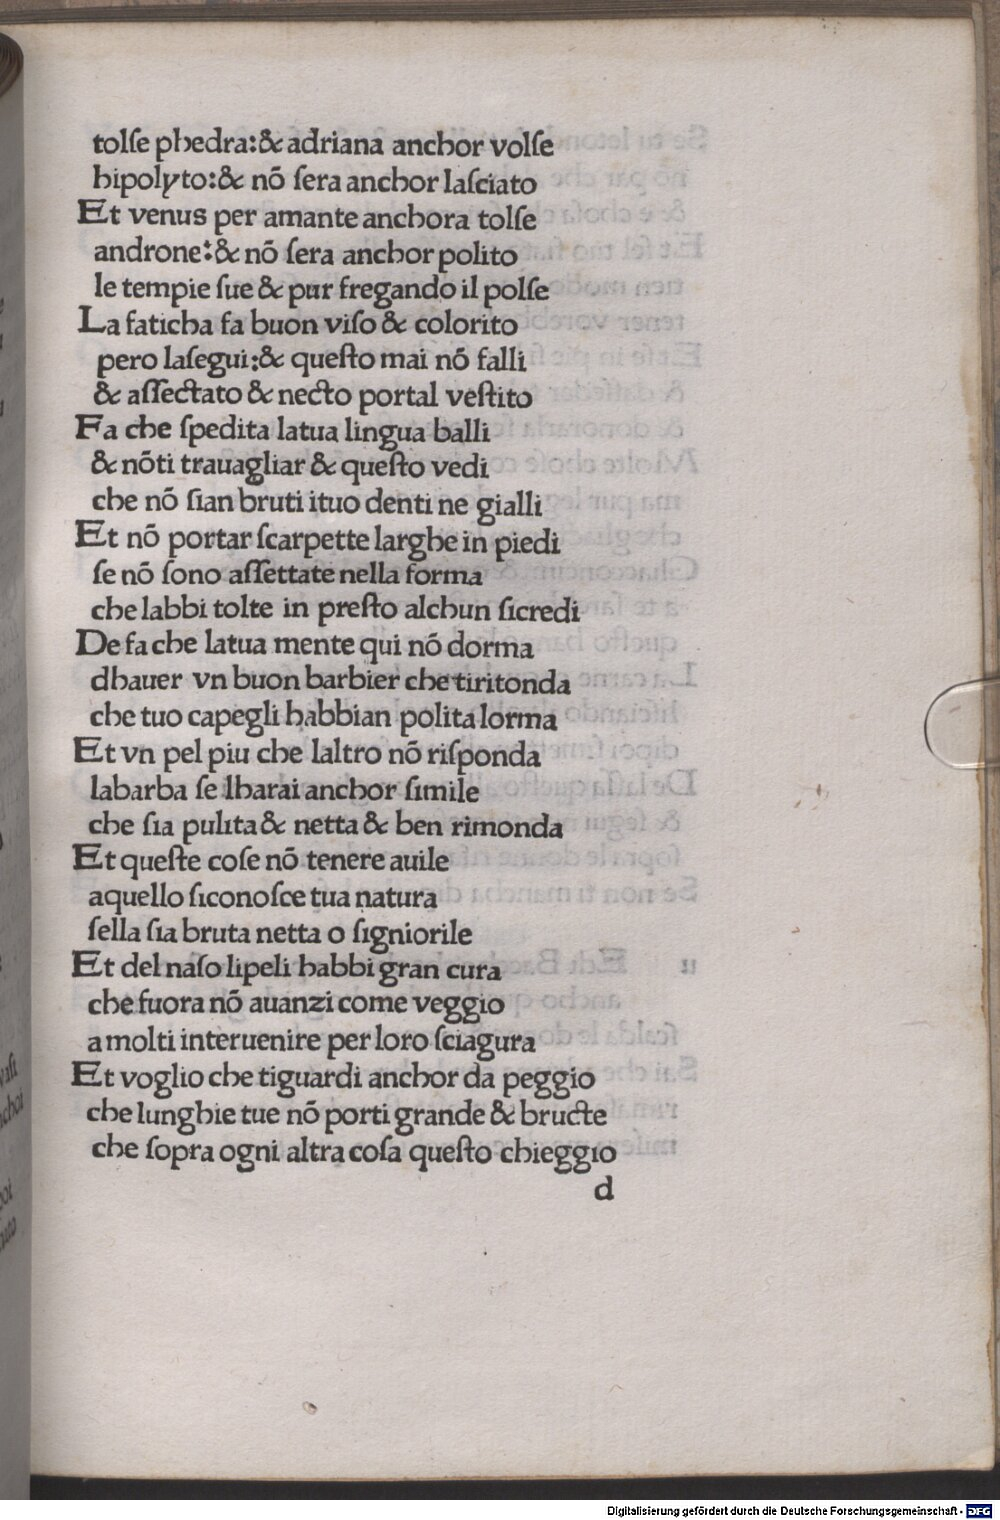 tolſe phedra:& adriana anchor volſe
hipolyto:& nō ſera anchor laſciato
Et venus per amante anchora tolſe
androne:& nō ſera anchor polito
le tempie ſue & pur fregando il polſe
La faticha fa buon viſo & colorito
pero laſegui:& queſto mai nō falli
& aſſectato & necto portal veſtito
Fa che ſpedita latua lingua balli
& nōti trauagliar & queſto vedi
che nō ſian bruti ituo denti ne gialli
Et nō portar ſcarpette larghe in piedi
ſe nō ſono aſſettate nella forma
che labbi tolte in preſto alchun ſicredi
De fa che latua mente qui nō dorma
dhauer vn buon barbier che tiritonda
che tuo capegli habbian polita lorma
Et vn pel piu che laltro nō riſponda
labarba ſe lharai anchor ſimile
che ſia pulita & netta & ben rimonda
Et queſte coſe nō tenere auile
aquello ſiconoſce tua natura
ſella ſia bruta netta o ſigniorile
Et del naſo lipeli habbi gran cura
che fuora nō auanzi come veggio
a molti interuenire per loro ſciagura
Et voglio che tiguardi anchor da peggio
che lunghie tue nō porti grande & bructe
che ſopra ogni altra coſa queſto chieggio
d
Digitalisierung gefördert durch die Deutsche Forschungsgemeinschaft - DFG